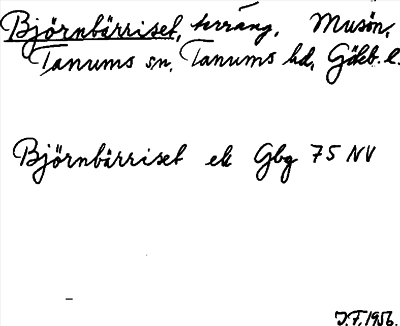 Björnbärriset, terräng, Musön,
Tanums sn, Tanums hd, Göteb. l.
Björnbärriset ek Gbg 75 NV
J.F. 1956.